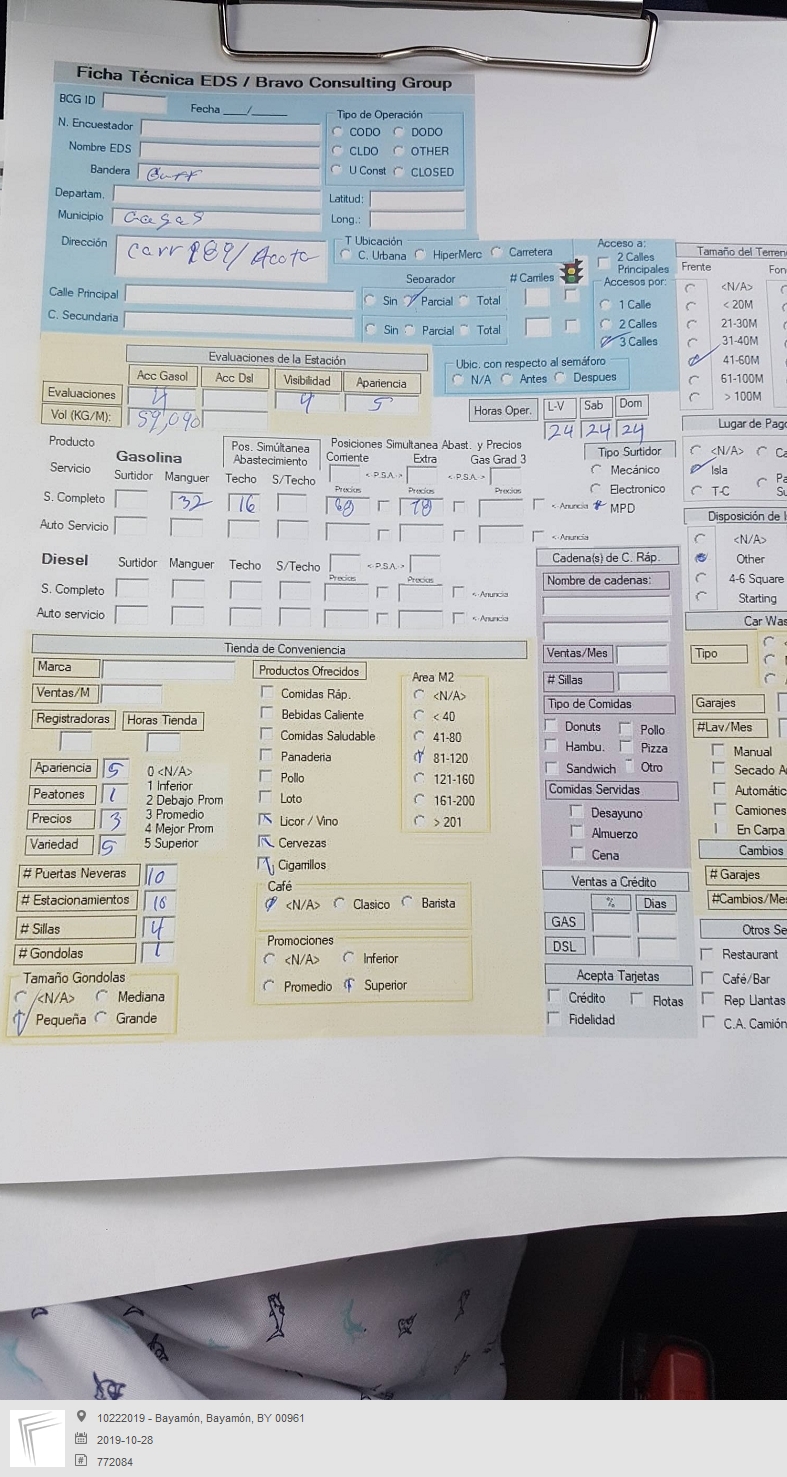 Ficha Técnica EDS / Bravo Consulting Group
BCG ID
Fecha ___/______
Tipo de Operación
N. Encuestador
CODO DODO
Nombre EDS
CLDO OTHER
Bandera Gulf
U Const CLOSED
Departam.
Latitud:
Municipio Caguas
Long.:
Dirección Carr 189/
T Ubicación
C. Urbana HiperMerc Carretera
Acceso a:
2 Calles Principales
Separador
# Carriles
Accesos por:
Calle Principal
Sin Parcial Total
1 Calle
C. Secundaria
Sin Parcial Total
2 Calles
3 Calles
Tamaño del Terren
Frente Fon
<N/A>
< 20M
21-30M
31-40M
41-60M
61-100M
> 100M
Evaluaciones de la Estación
Acc Gasol Acc Dsl Visibilidad Apariencia
Evaluaciones 4 4 5
Vol (KG/M): 59,090
Ubic. con respecto al semáforo
N/A Antes Despues
Horas Oper. L-V Sab Dom
24 24 24
Lugar de Pago
<N/A> Ca
Isla
T-C
Producto
Servicio
Gasolina
Surtidor Manguer
Pos. Simúltanea Abastecimiento
Techo S/Techo
Posiciones Simultanea Abast. y Precios
Corriente Extra Gas Grad 3
<-P.S.A.-> <-P.S.A.->
Precios Precios Precios
S. Completo 32 16 68 78 <-Anuncia
Auto Servicio <-Anuncia
Tipo Surtidor
Mecánico
Electronico
MPD
Disposición de I
<N/A>
Other
4-6 Square
Starting
Diesel Surtidor Manguer Techo S/Techo <-P.S.A.->
Precios Precios
S. Completo <-Anuncia
Auto servicio <-Anuncia
Cadena(s) de C. Ráp.
Nombre de cadenas:
Ventas/Mes
# Sillas
Tipo de Comidas
Donuts Pollo
Hambu. Pizza
Sandwich Otro
Comidas Servidas
Desayuno
Almuerzo
Cena
Car Was
Tipo
Garajes
#Lav/Mes
Manual
Secado A
Automátic
Camiones
En Carpa
Cambios
# Garajes
#Cambios/Mes
Tienda de Conveniencia
Marca
Ventas/M
Registradoras Horas Tienda
Apariencia 5
Peatones 1
Precios 3
Variedad 5
0 <N/A>
1 Inferior
2 Debajo Prom
3 Promedio
4 Mejor Prom
5 Superior
# Puertas Neveras 10
# Estacionamientos 16
# Sillas 4
# Gondolas 1
Tamaño Gondolas
<N/A> Mediana
Pequeña Grande
Productos Ofrecidos
Comidas Ráp.
Bebidas Caliente
Comidas Saludable
Panaderia
Pollo
Loto
Licor / Vino
Cervezas
Cigarrillos
Area M2
<N/A>
< 40
41-80
81-120
121-160
161-200
> 201
Café
<N/A> Clasico Barista
Promociones
<N/A> Inferior
Promedio Superior
Ventas a Crédito
% Dias
GAS
DSL
Acepta Tarjetas
Crédito Flotas
Fidelidad
Otros Se
Restaurant
Café/Bar
Rep Llantas
C.A. Camión
10222019 - Bayamón, Bayamón, BY 00961
2019-10-28
772084